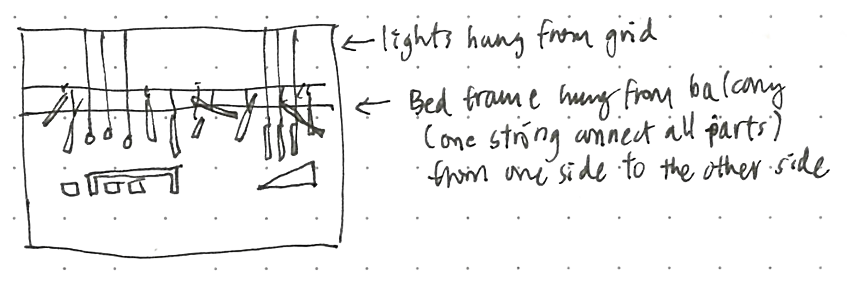 ← lights hung from grid
← Bed frame hung from balcony
(one string connect all parts)
from one side to the other side